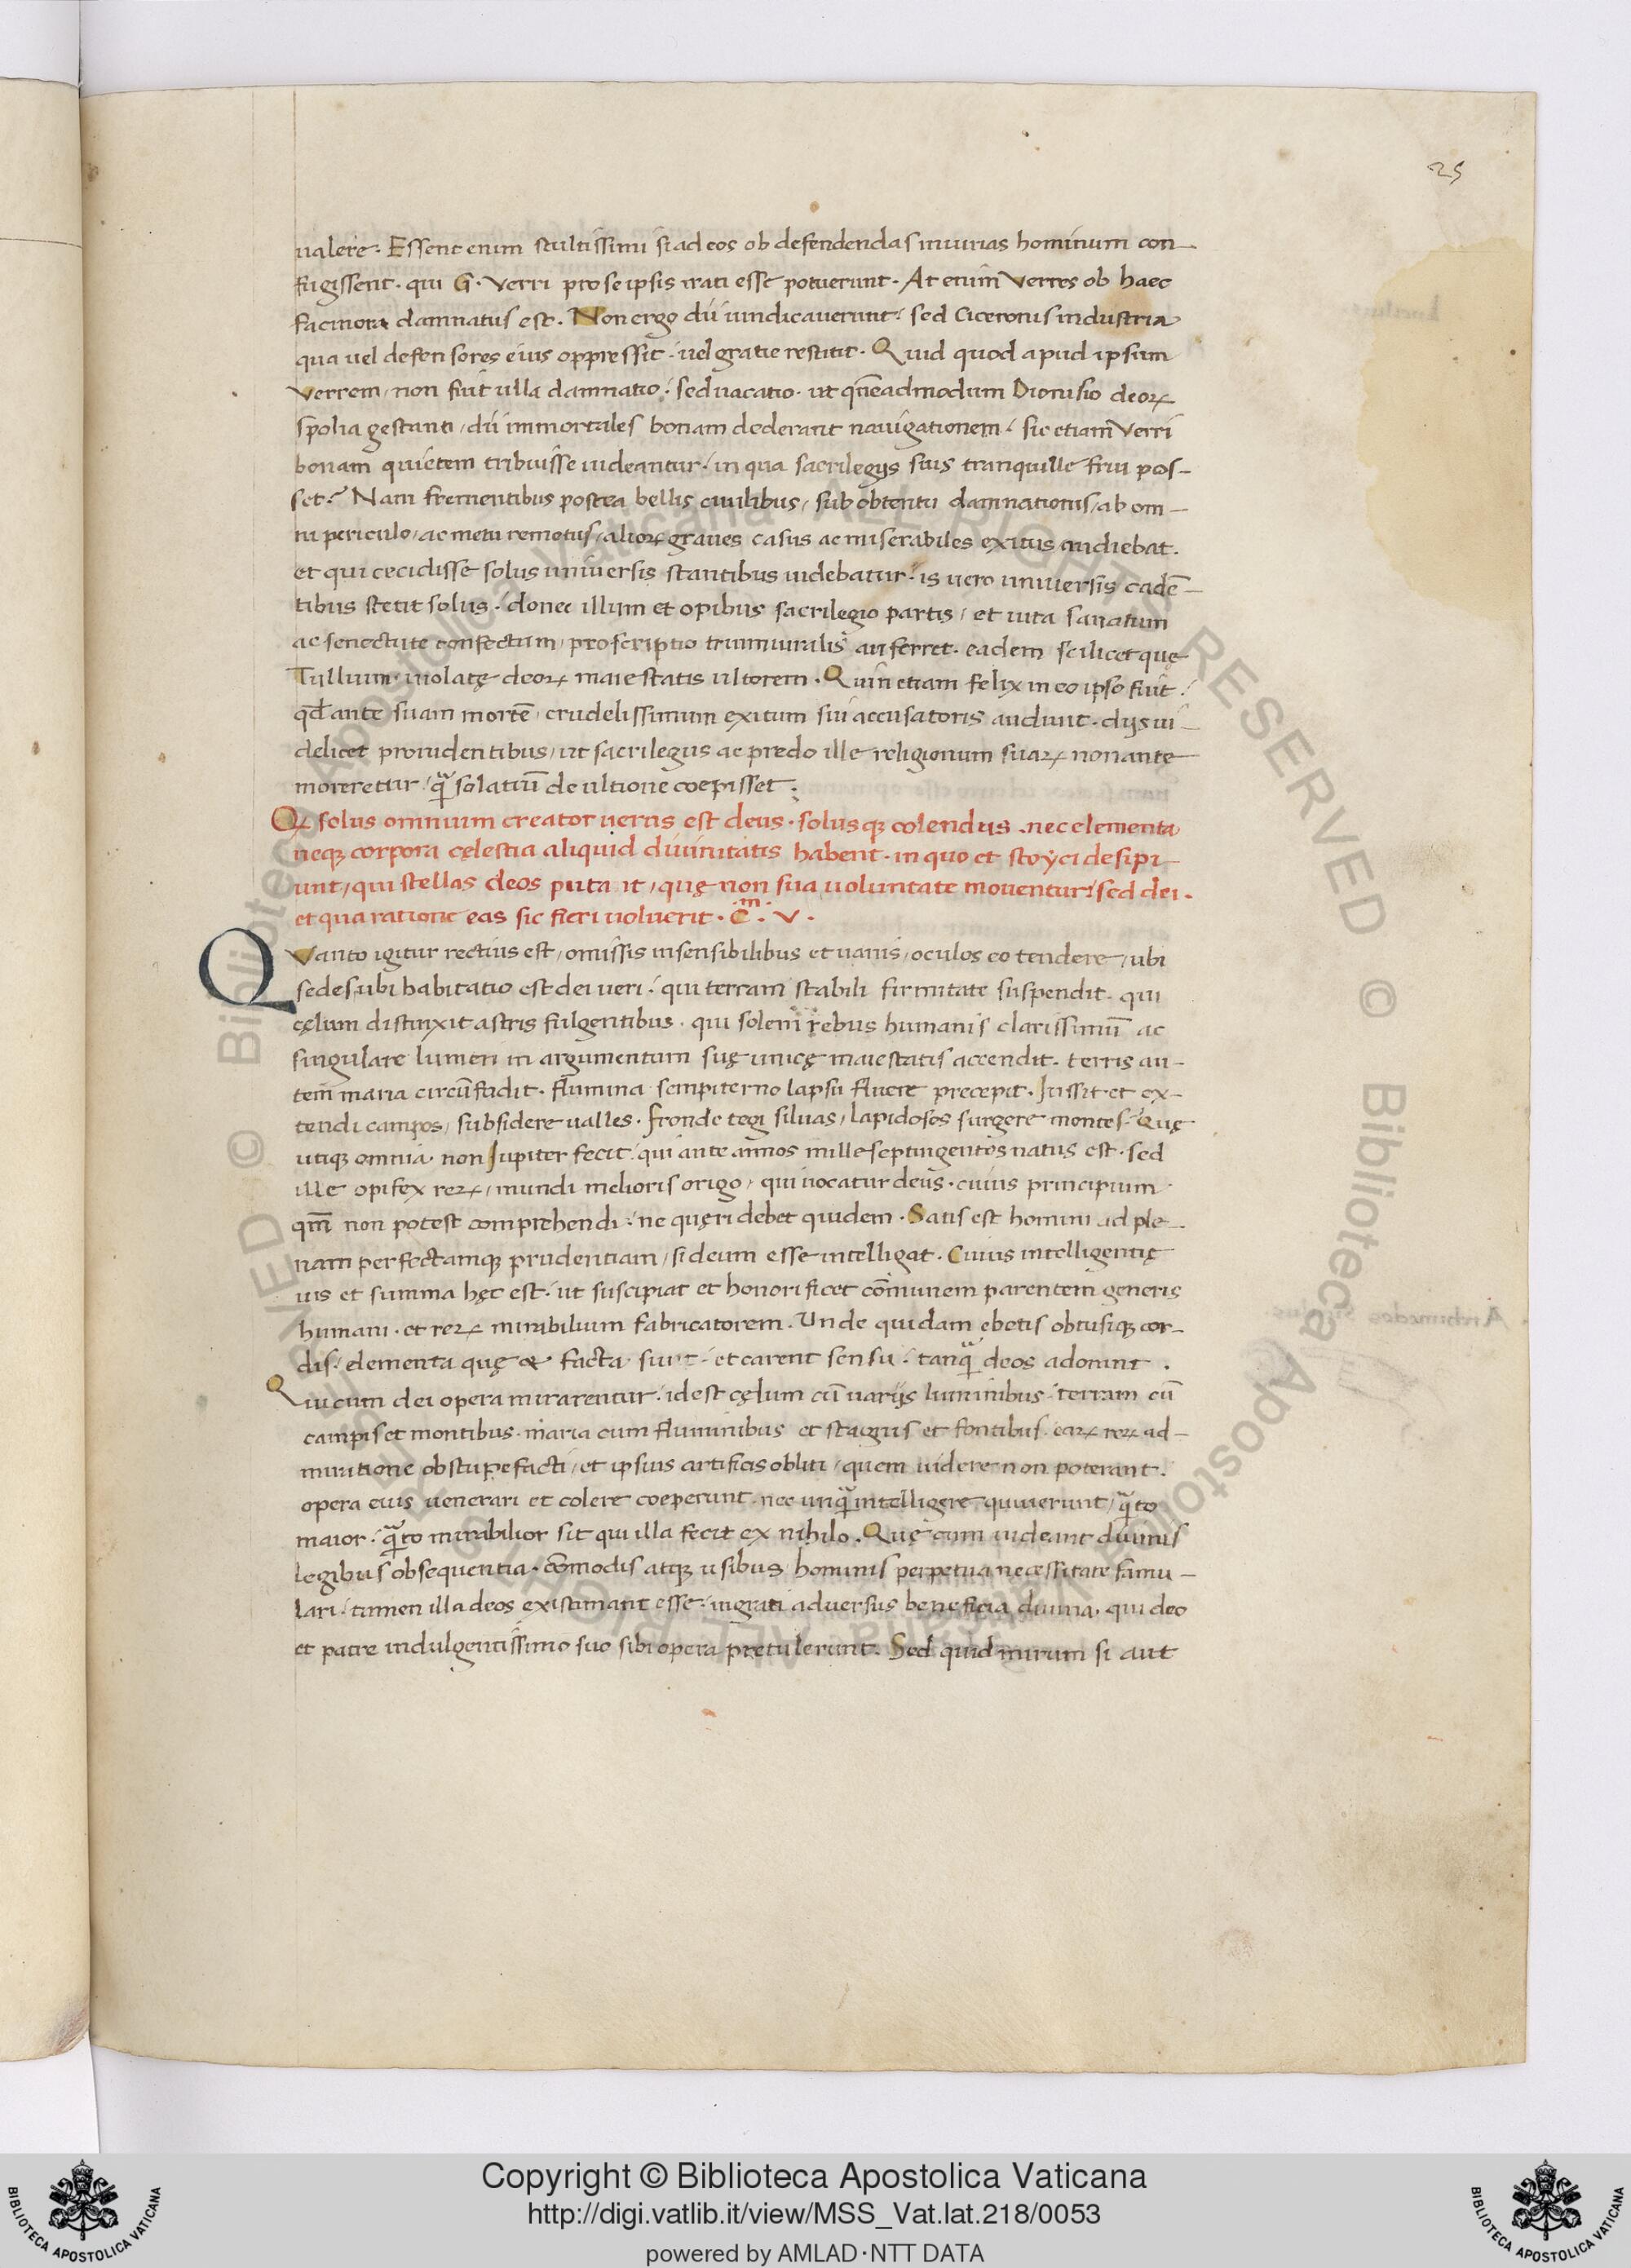 25
ualere. Essent enim stultissimi si ad eos ob defendendas iniurias hominum con-
fugissent. qui G. Verri pro se ipsis irati esse potuerunt. At enim Verres ob haec
facinora damnatus est. Non ergo dii uindicauerunt: sed Ciceronis industria
qua uel defensores eius oppressit. uel gratie restitit. Quid quod apud ipsum
Verrem, non fuit ulla damnatio. sed uacatio. ut quēadmodum Dionisio deoꝝ
spolia gestanti, dii immortales bonam dederant nauigationem: sic etiam Verri
bonam quietem tribuisse uideantur. in qua sacrilegijs suis tranquille frui pos-
set? Nam frementibus postea bellis ciuilibus, sub obtentu damnationis, ab om-
ni periculo, ac metu remotus, alioꝝ graues casus ac miserabiles exitus audiebat.
et qui cecidisse solus uniuersis stantibus uidebatur. is uero uniuersis cadē-
tibus stetit solus. donec illum et opibus sacrilegio partis, et uita sanatum
ac senectute confectum, proscriptio triumuiralis auferret. eadem scilicet quę
Tullium. uiolatę deoꝝ maiestatis ultorem. Quin etiam felix in eo ipso fuit.
qd̄ ante suam mortē, crudelissimum exitum sui accusatoris audiuit. dijs ui-
delicet prouidentibus, ut sacrilegus ac predo ille religionum suaꝝ non ante
moreretur, qͣ̄ solatiū de ultione coepisset:
Qꝫ solus omnium creator uerus est deus. solusqꝫ colendus. nec elementa
neqꝫ corpora cęlestia aliquid diuinitatis habent. in quo et stoyci desipi-
unt, qui stellas deos putant, quę non sua uoluntate mouentur: sed dei.
et qua ratione eas sic fieri uoluerit. Cͫ. V.
Quanto igitur rectius est, omissis insensibilibus et uanis, oculos eo tendere, ubi
sedes, ubi habitatio est dei ueri. qui terram stabili firmitate suspendit. qui
cęlum distinxit astris fulgentibus. qui solem rebus humanis clarissimū ac
singulare lumen in argumentum suę unicę maiestatis accendit. terris au-
tem maria circūfudit. flumina sempiterno lapsu fluere precepit. Iussit et ex-
tendi campos, subsidere ualles. fronde tegi siluas, lapidosos surgere montes. Quę
utiqꝫ omnia non Iupiter fecit. qui ante annos mille septingentos natus est. sed
ille opifex reꝝ, mundi melioris origo, qui uocatur deus. cuius principium
qm̄ non potest comprehendi: ne quęri debet quidem. Satis est homini ad ple-
nam perfectamqꝫ prudentiam, si deum esse intelligat. Cuius intelligentię
uis et summa hęc est. ut suscipiat et honorificet cōmunem parentem generis
humani. et reꝝ mirabilium fabricatorem. Unde quidam ebetis obtusiqꝫ cor-
dis. elementa quę et facta sunt. et carent sensu. tanqͣ̄ deos adorant.
Qui cum dei opera mirarentur. idest cęlum cū uarijs luminibus. terram cū
campis et montibus. maria cum fluminibus et stagnis et fontibus. eaꝝ reꝝ ad-
miratione obstupefacti, et ipsius artificis obliti, quem uidere non poterant.
opera eius uenerari et colere coeperunt. nec unqͣ̄ intelligere quiuerunt, qͣ̄to
maior. qͣ̄to mirabilior sit qui illa fecit ex nihilo. Quę cum uideant diuinis
legibus obsequentia. cōmodis atqꝫ usibus hominis perpetua necessitate famu-
lari. tamen illa deos existimant esse. ingrati aduersus beneficia diuina. qui deo
et patre indulgentissimo suo sibi opera prętulerunt. Sed quid mirum si aut
Copyright © Biblioteca Apostolica Vaticana
http://digi.vatlib.it/view/MSS_Vat.lat.218/0053
powered by AMLAD·NTT DATA
BIBLIOTECA APOSTOLICA VATICANA
BIBLIOTECA APOSTOLICA VATICANA